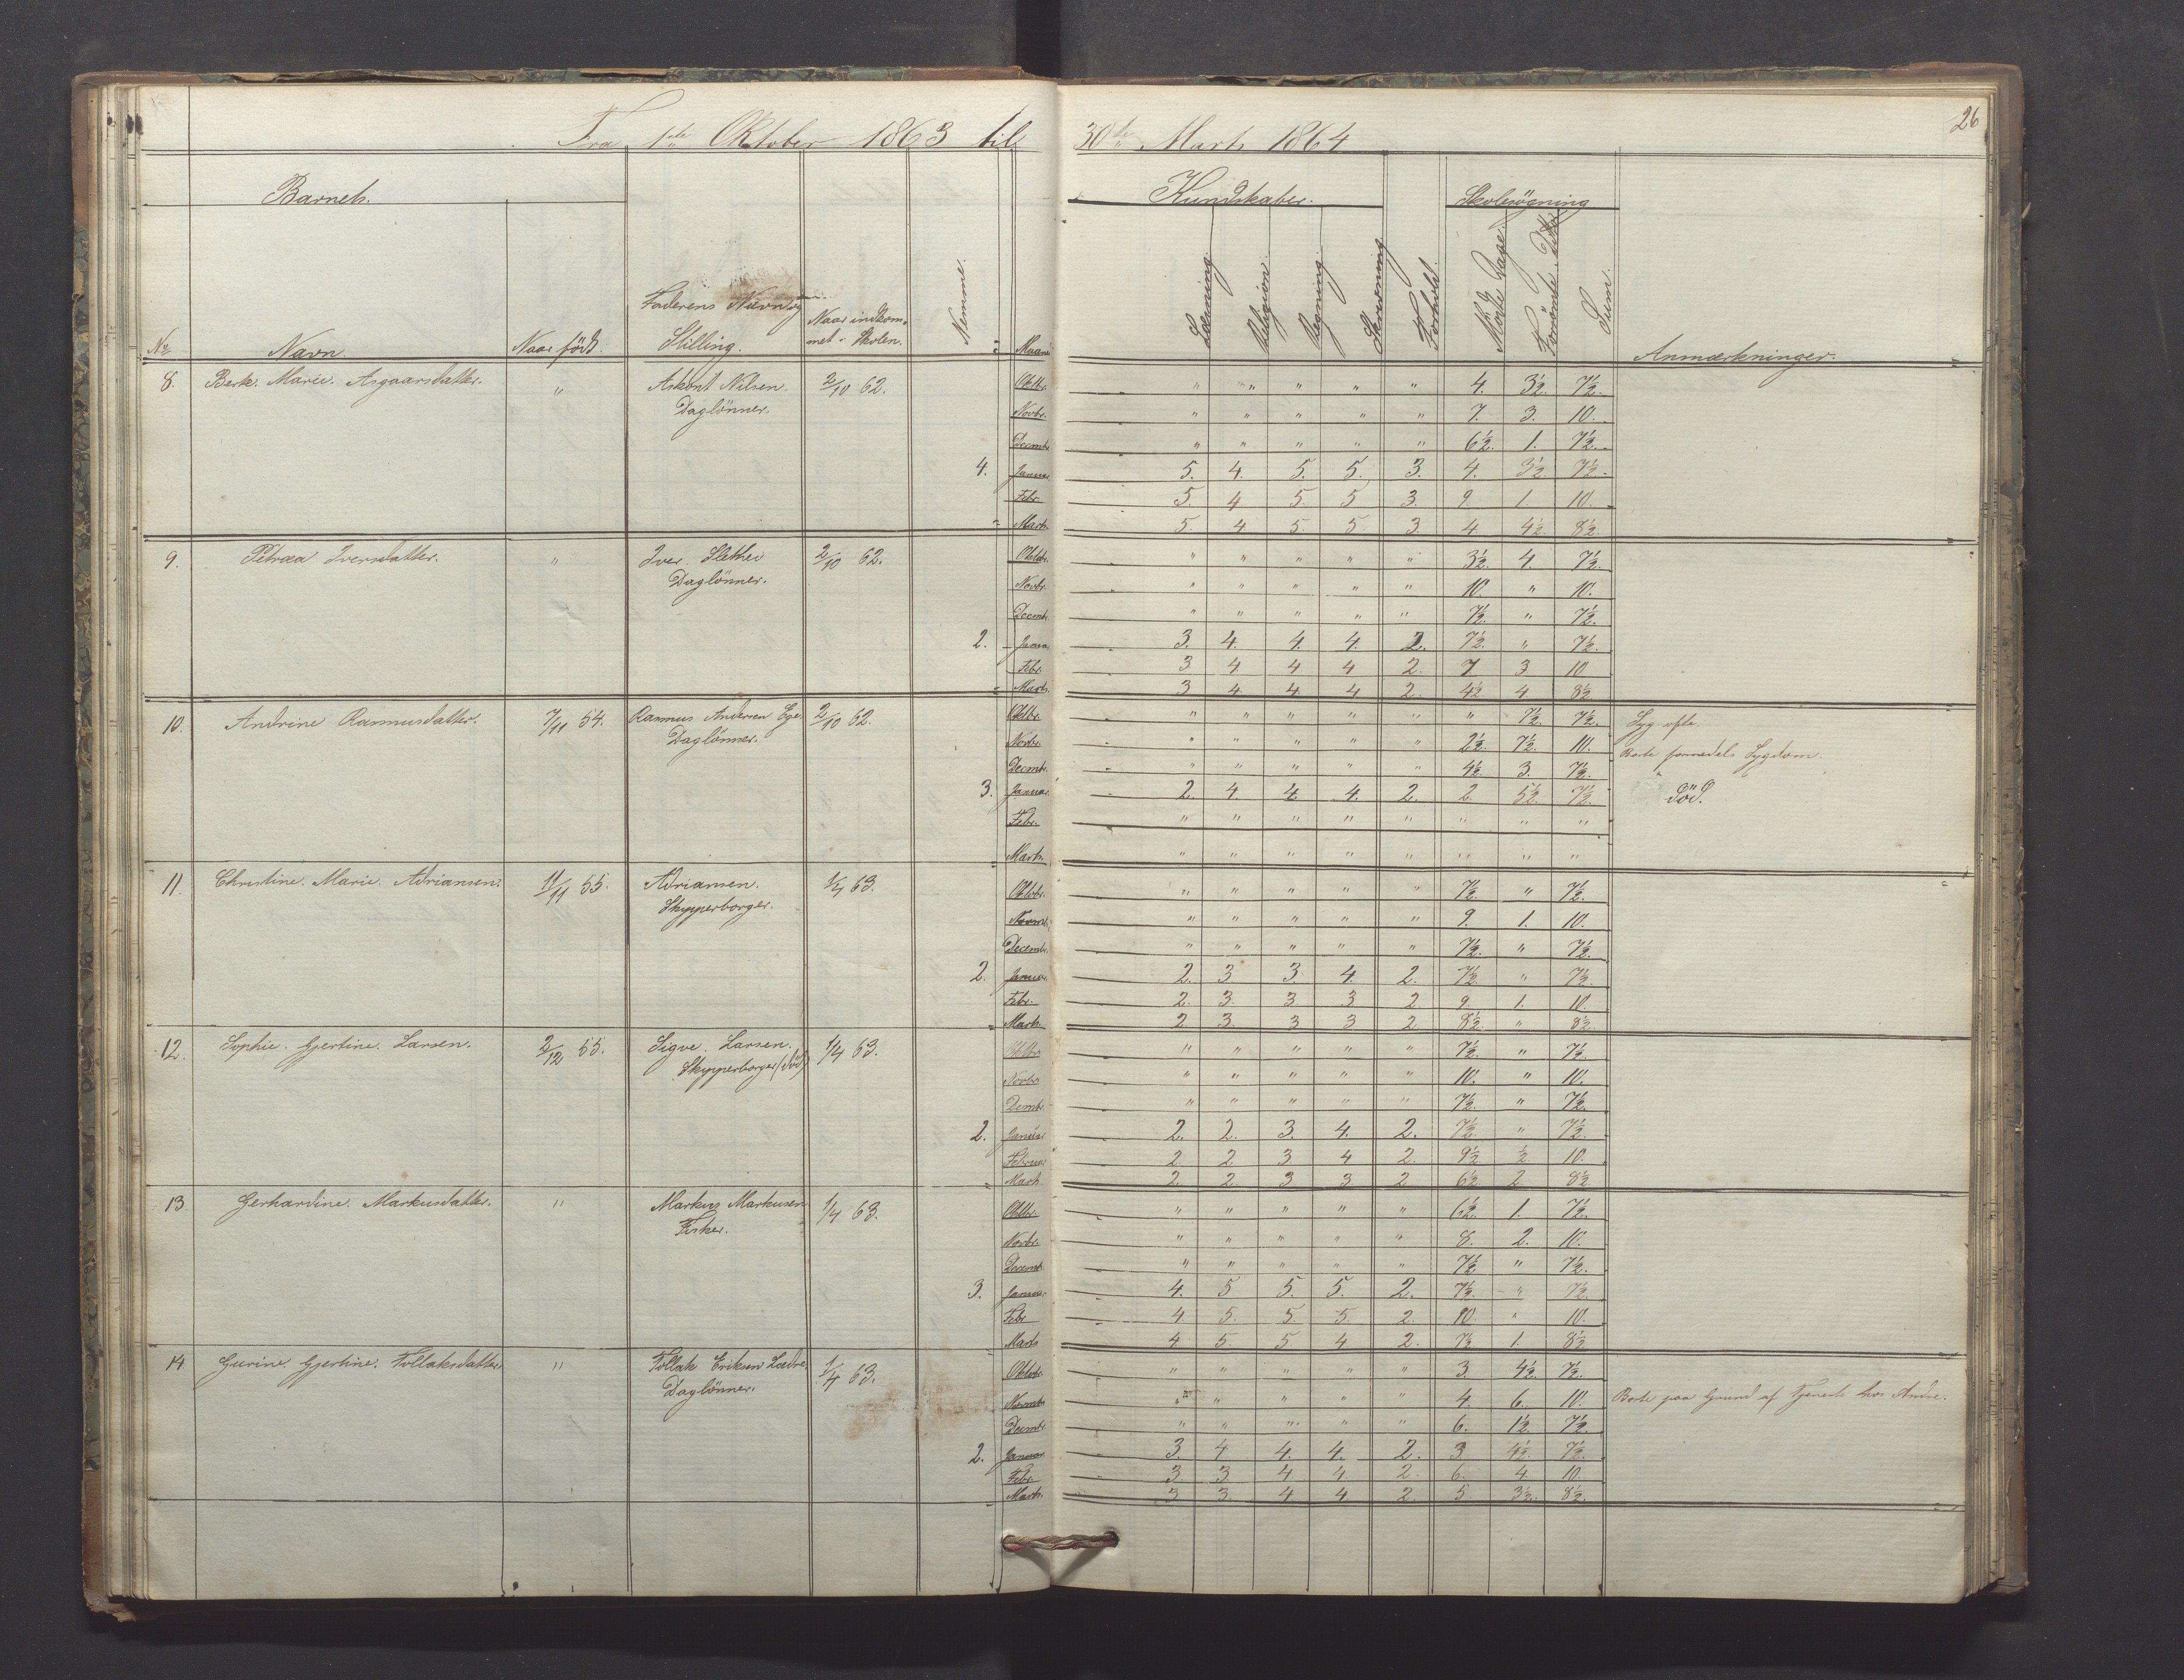 26
Fra 1ste Oktober 1863 til 30te Marts 1864
Barnets. Kundskaber. Skolesøgning
No Navn. Naar født. Faderens Navn og Stilling. Naar indkommet i Skolen. Nemme. Maaned Læsning Religion. Regning. Skrivning Forhold. Mødte Dage. Forsømte Ditto Sum. Anmærkninger.
8. Berte. Marie. Asgaarsdatter. " Nilsen. 2/10 62. Oktbr. " " " " " 4. 3½. 7½.
Daglönner. Novbr. " " " " " 7. 3. 10.
Decmbr. " " " " " 6½. 1. 7½.
4. Januar 5. 4. 5. 5. 3. 4. 3½ 7½.
Febr. 5 4 5. 5 3. 9. 1. 10.
Marts. 5. 4 5. 5 3. 4. 4½. 8½.
9. Petrea Iversdatter. " Iver Slethei 2/10 62. Oktobr. " " " " " 3½. 4. 7½.
Daglönner. Novbr. " " " " " 10. " 10.
Decmbr. " " " " " 7½. " 7½.
2. Januar 3. 4. 4. 4. 2. 7½. " 7½.
Febr. 3 4 4 4 2. 7 3 10
Marts. 3 4 4 4 2. 4½ 4 8½
10. Andrine Rasmusdatter. 7/11 54. Rasmus Andersen Ege. 2/10 62. Oktbr. " " " " " " 7½. 7½. Syg ofte.
Daglönner. Novbr. " " " " " 2½. 7½. 10. Borte formedels Sygdom.
Decmbr. " " " " " 4½. 3. 7½. "
3. Januar. 2. 4. 4. 4. 2. 2. 5½. 7½. død.
Febr. " " " " " " " "
Marts. " " " " " " " "
11. Christine. Marie. Adriansen. 11/11 55. Adriansen. 1/4 63. Oktobr. " " " " " 7½. " 7½.
Skypperborger. Novmbr. " " " " " 9. 1. 10.
Decembr. " " " " " 7½. " 7½.
2. Januar 2. 3 3. 4. 2. 7½. " 7½.
Febr. 2. 3. 3 3 2 9. 1. 10
Marts 2 3. 3 3 2 8½. " 8½.
12. Sophie. Gjertine. Larsen. 2/12 55. Sigve. Larsen. 1/4 63. Oktbr " " " " " 7½. " 7½.
Skypperborger (död) Novbr " " " " " 10. " 10.
Decmbr " " " " " 7½. " 7½.
2. Januar 2. 2. 3. 4. 2. 7½. " 7½.
Februar 2 2 3 4 2. 9½ ½. 10.
Marts 2. 2. 3 3 2 6½ 2 8½
13 Gerhardine. Markusdatter. " Markus Markusen 1/4 63. Oktbr. " " " " " 6½. 1. 7½.
Fisker. Novbr. " " " " " 8. 2. 10.
Decemb. " " " " " 7½. " 7½.
3. Januar. 4. 5 5. 5. 2. 7½. " 7½.
Febr 4 5. 5. 5 2. 10. " 10.
Marts 4 5. 5 4 2. 7½ 1. 8½
14 Gurine. Gjertine. Tollaksdatter. " Tollak Eriksen Lædre. 1/4 63. Oktobr. " " " " " 3. 4½. 7½.
Daglönner. Novmbr " " " " " 4. 6. 10. Borte paa Grund af Tjeneste hos Andre.
Decmbr. " " " " " 6. 1½ 7½.
2. Januar 3. 4 4. 4. 2. 3 4½. 7½.
Febr. 3 3 4 4 2. 6. 4 10.
Marts. 3 3. 4 4 2 5. 3½. 8½.